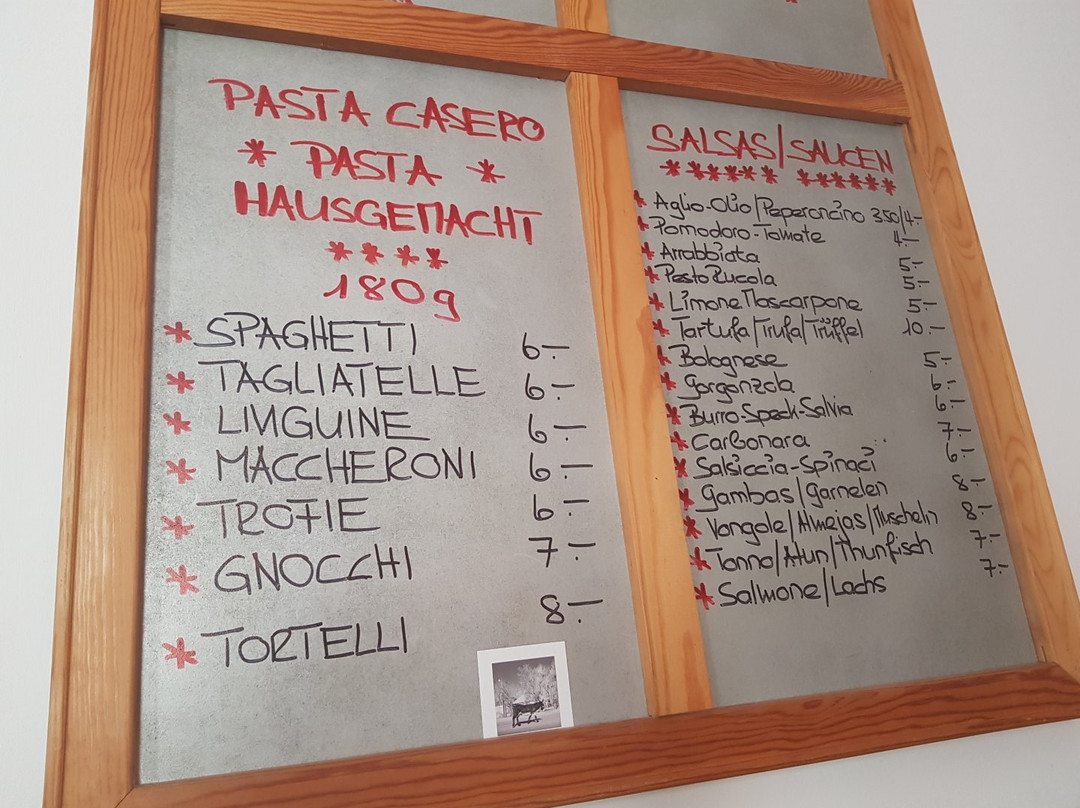 PASTA CASERO
* PASTA *
HAUSGEMACHT
****
180g
* SPAGHETTI 6.-
* TAGLIATELLE 6.-
* LINGUINE 6.-
* MACCHERONI 6.-
* TROFIE 6.-
* GNOCCHI 7.-
* TORTELLI 8.-
SALSAS/SAUCEN
***** ******
* Aglio-Olio/Peperoncino 350/4.-
* Pomodoro-Tomate 4.-
* Arrabbiata 5.-
* Pesto Rucola 5.-
* Limone Mascarpone 5.-
* Tartufa/Trufa/Trüffel 10.-
* Bolognese 5.-
* Gorgonzola 6.-
* Burro-Speck-Salvia 6.-
* Carbonara 7.-
* Salsiccia-Spinaci 6.-
* Gambas/Garnelen 8.-
* Vongole/Almejas/Muscheln 8.-
* Tonno/Atun/Thunfisch 7.-
* Salmone/Lachs 7.-